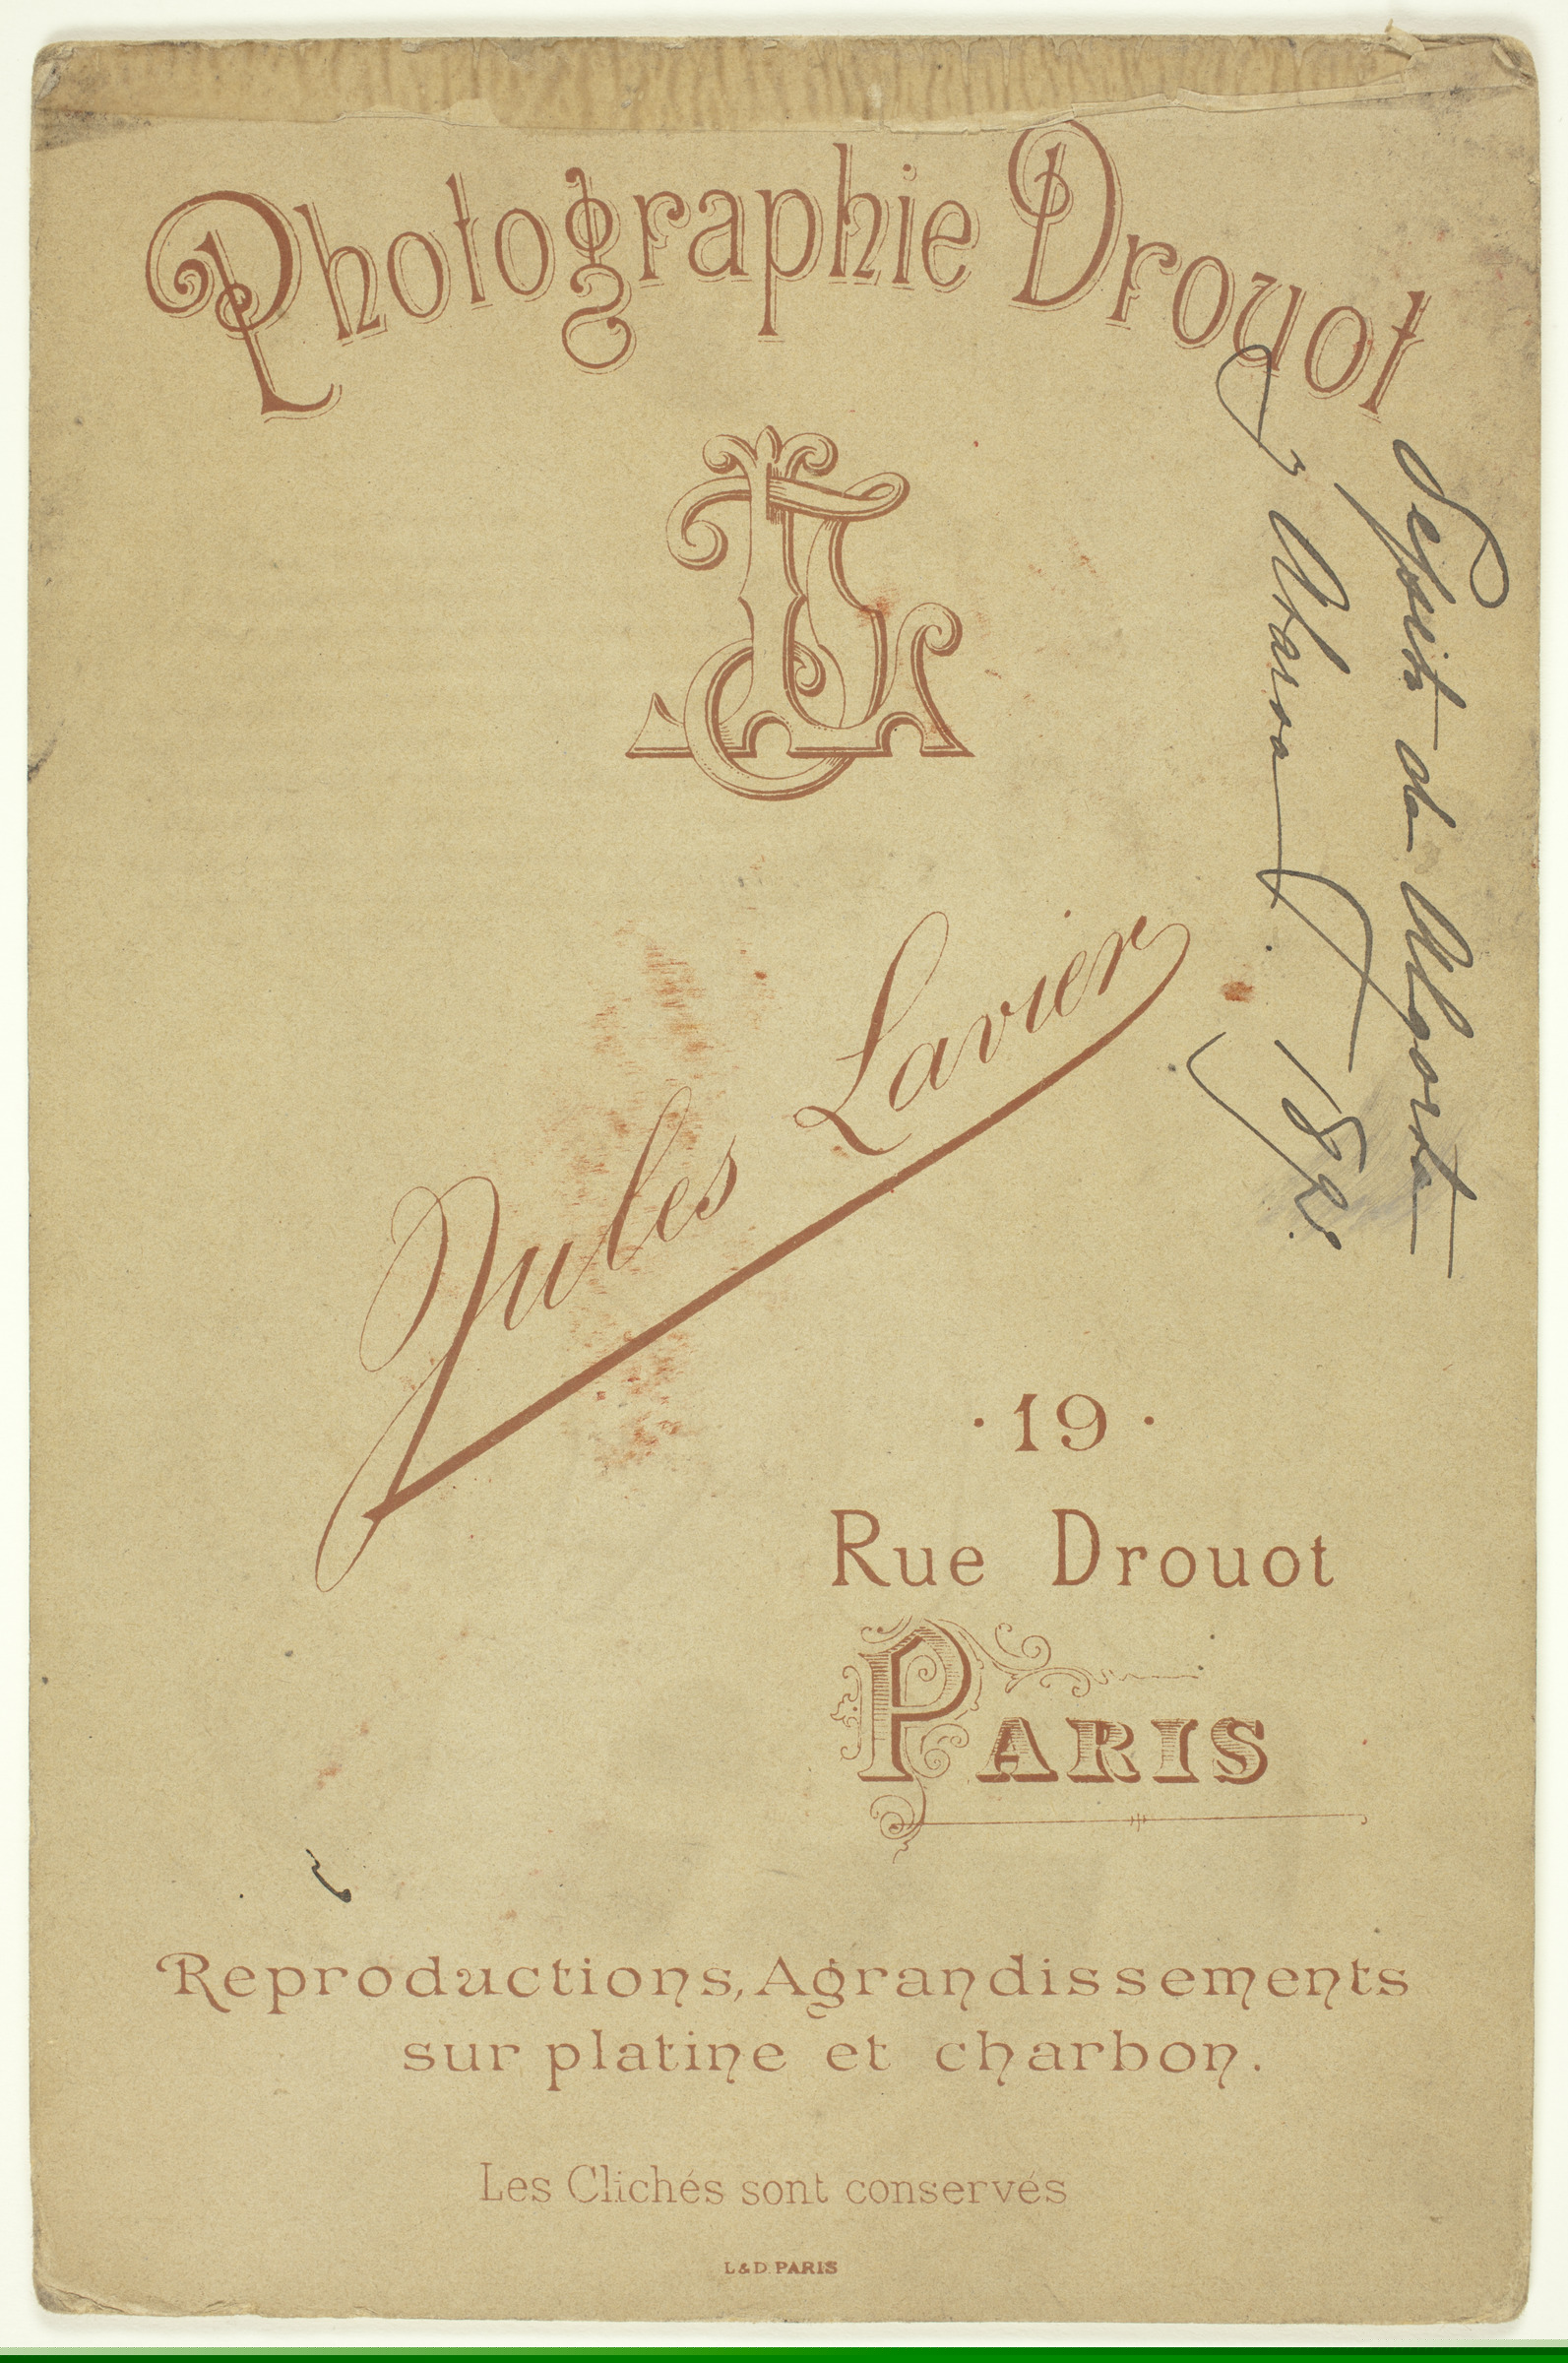 Photographie Drouot
JL
Jules Lavier
· 19 ·
Rue Drouot
PARIS
Reproductions, Agrandissements
sur platine et charbon.
Les Clichés sont conservés
L & D. PARIS
de Algorta
y